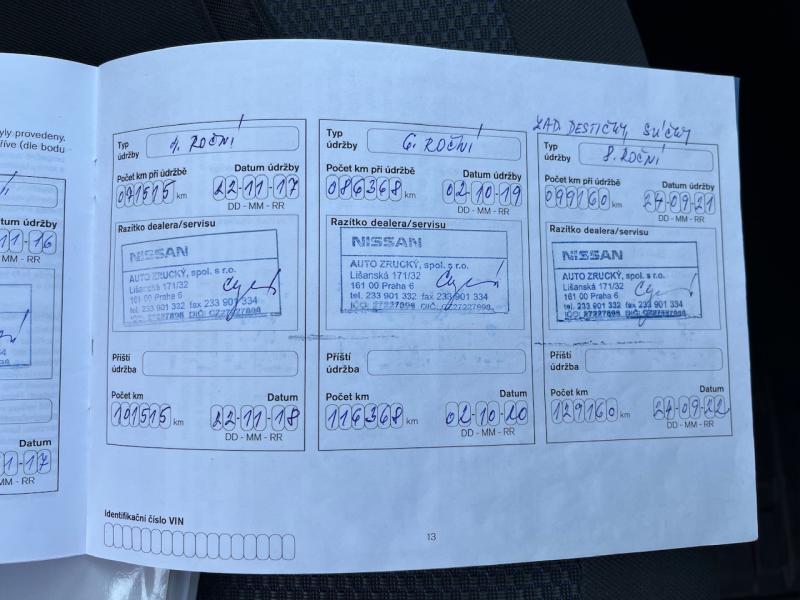 yly provedeny,
říve (dle bodu
tum údržby
11-16
MM - RR
Datum
1-17
MM - RR
Typ
údržby
4. ROČNÍ
Počet km při údržbě
Datum údržby
071515 km
22-11-17
DD - MM - RR
Razítko dealera/servisu
NISSAN
AUTO ZRUCKÝ, spol. s r.o.
Lišanská 171/32
161 00 Praha 6
tel. 233 901 332 fax 233 901 334
IČO: 27227898 DIČ: CZ27227898
Příští
údržba
Počet km
Datum
101515 km
22-11-18
DD - MM - RR
Typ
údržby
6. ROČNÍ
Počet km při údržbě
Datum údržby
086368 km
02-10-19
DD - MM - RR
Razítko dealera/servisu
NISSAN
AUTO ZRUCKÝ, spol. s r.o.
Lišanská 171/32
161 00 Praha 6
tel. 233 901 332 fax 233 901 334
IČO: 27227898 DIČ: CZ27227898
Příští
údržba
Počet km
Datum
116368 km
02-10-20
DD - MM - RR
ZAD. DESTIČKY, SVÍČKY
Typ
údržby
8. ROČNÍ
Počet km při údržbě
Datum údržby
099160 km
24-09-21
DD - MM - RR
Razítko dealera/servisu
NISSAN
AUTO ZRUCKÝ, spol. s r.o.
Lišanská 171/32
161 00 Praha 6
tel. 233 901 332 fax 233 901 334
IČO: 27227898 DIČ: CZ27227898
Příští
údržba
Počet km
Datum
129160 km
24-09-22
DD - MM - RR
Identifikační číslo VIN
13